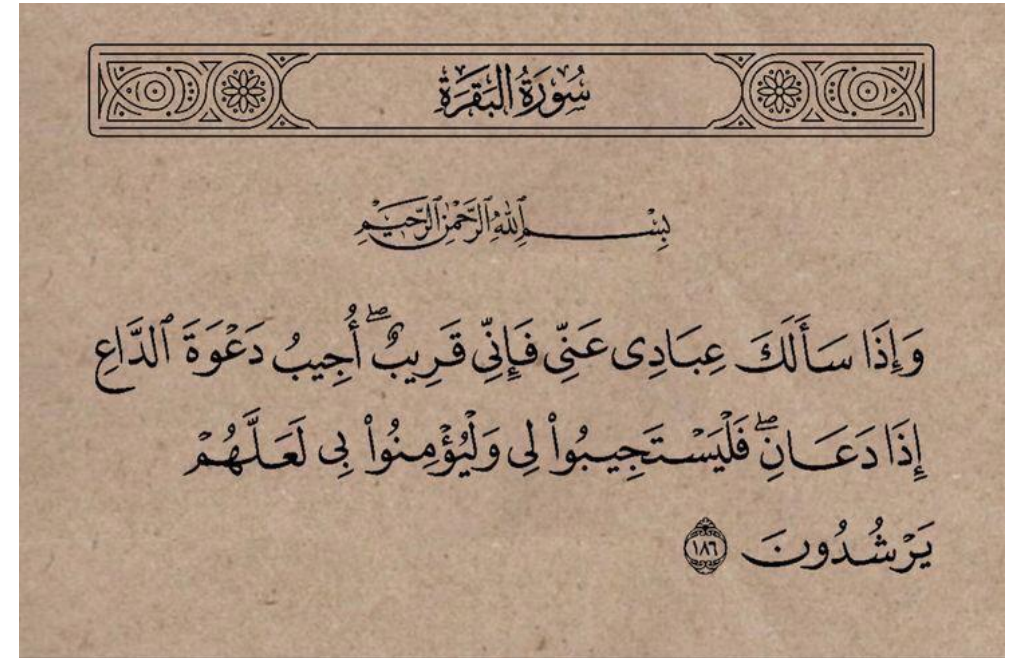 سُورَةُ البَقَرَةِ
بِسْمِ ٱللَّهِ ٱلرَّحْمَٰنِ ٱلرَّحِيمِ
وَإِذَا سَأَلَكَ عِبَادِى عَنِّى فَإِنِّى قَرِيبٌ ۖ أُجِيبُ دَعْوَةَ ٱلدَّاعِ
إِذَا دَعَانِ ۖ فَلْيَسْتَجِيبُوا۟ لِى وَلْيُؤْمِنُوا۟ بِى لَعَلَّهُمْ
يَرْشُدُونَ ١٨٦